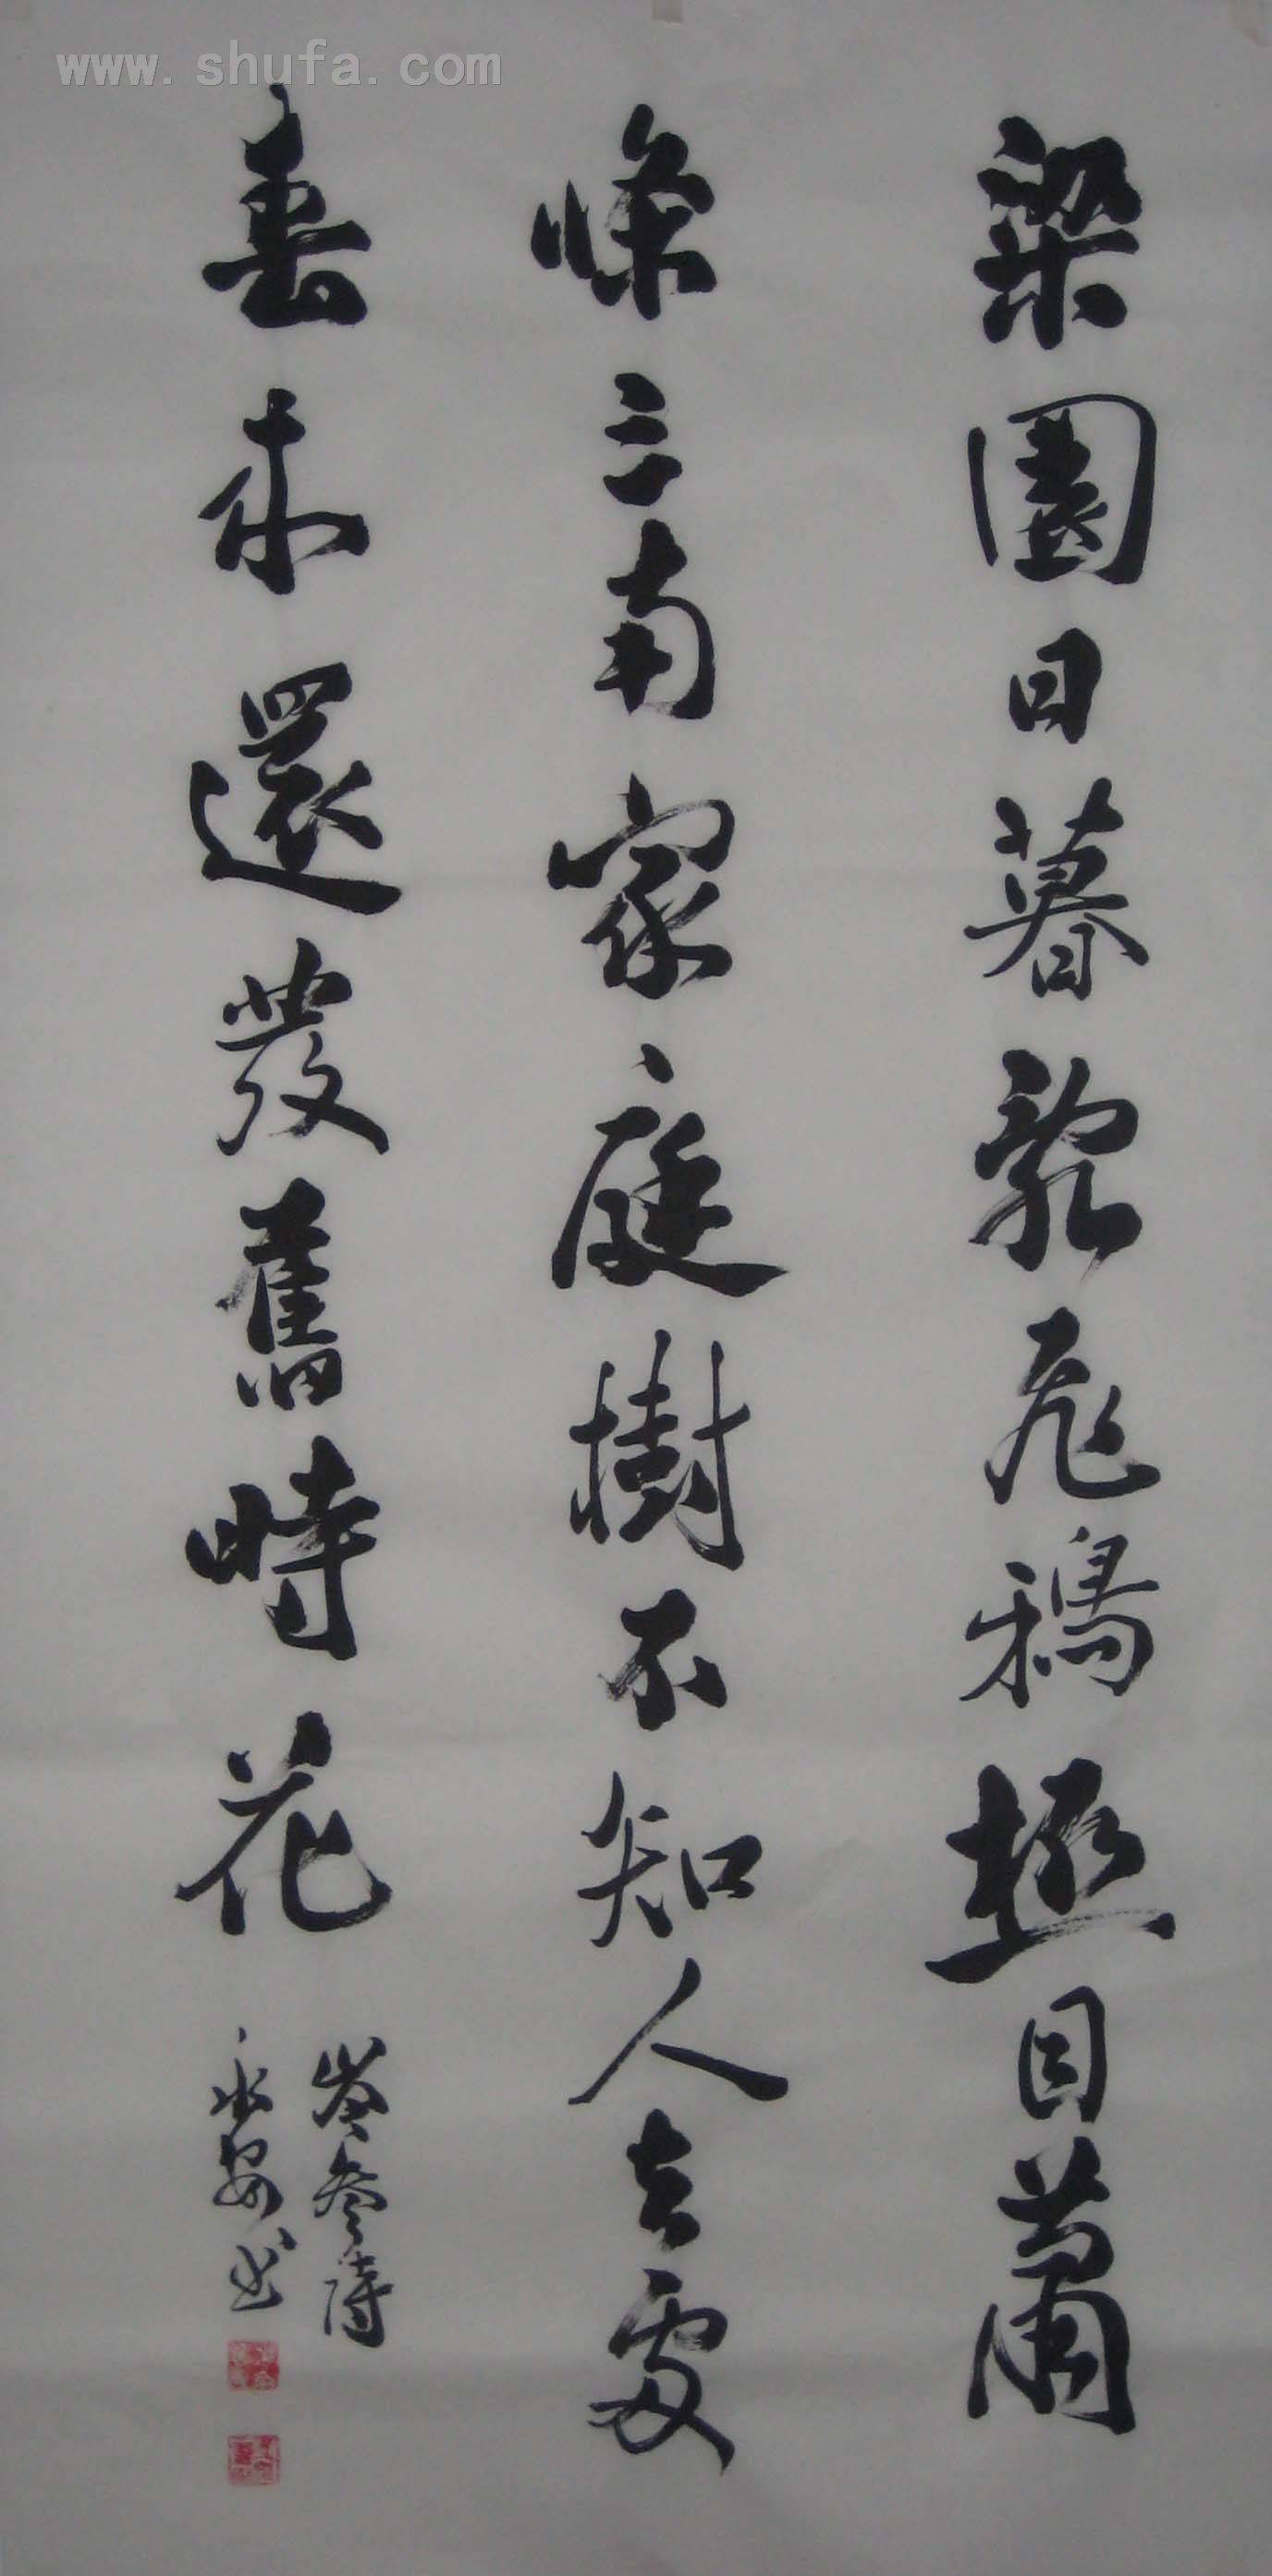 www.shufa.com
梁園日暮亂飛鴉極目蕭
條三兩家庭樹不知人去處
春來還發舊時花
岑參詩
永安书